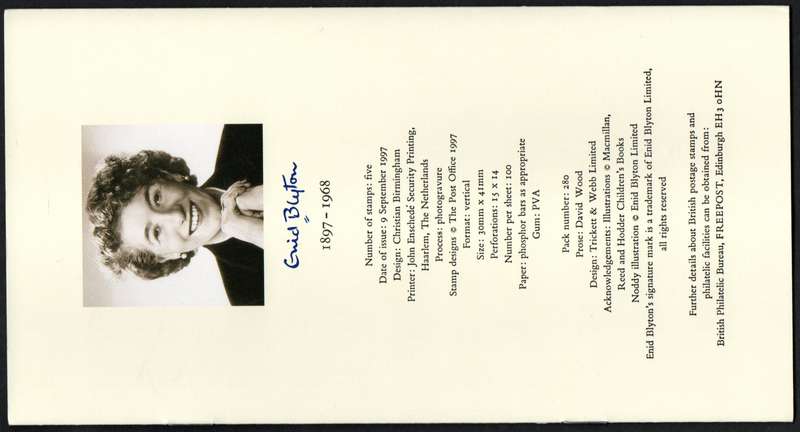 Enid Blyton
1897–1968
Number of stamps: five
Date of issue: 9 September 1997
Design: Christian Birmingham
Printer: John Enschedé Security Printing,
Haarlem, The Netherlands
Process: photogravure
Stamp designs © The Post Office 1997
Format: vertical
Size: 30mm x 41mm
Perforations: 15 x 14
Number per sheet: 100
Paper: phosphor bars as appropriate
Gum: PVA
Pack number: 280
Prose: David Wood
Design: Trickett & Webb Limited
Acknowledgements: Illustrations © Macmillan,
Reed and Hodder Children's Books
Noddy illustration © Enid Blyton Limited
Enid Blyton's signature mark is a trademark of Enid Blyton Limited,
all rights reserved
Further details about British postage stamps and
philatelic facilities can be obtained from:
British Philatelic Bureau, FREEPOST, Edinburgh EH3 0HN